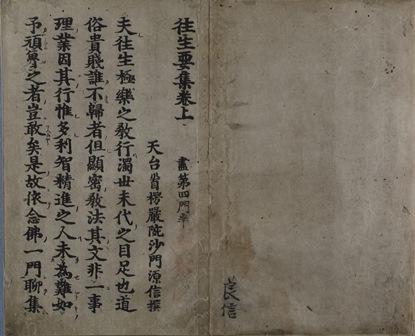 信
往生要集卷上 盡第四門半
天台首楞嚴院沙門源信撰
夫往生極樂之教行濁世末代之目足也道
俗貴賤誰不歸者但顯密教法其文非一事
理業因其行惟多利智精進之人未為難如
予頑魯之者豈敢矣是故依念佛一門聊集